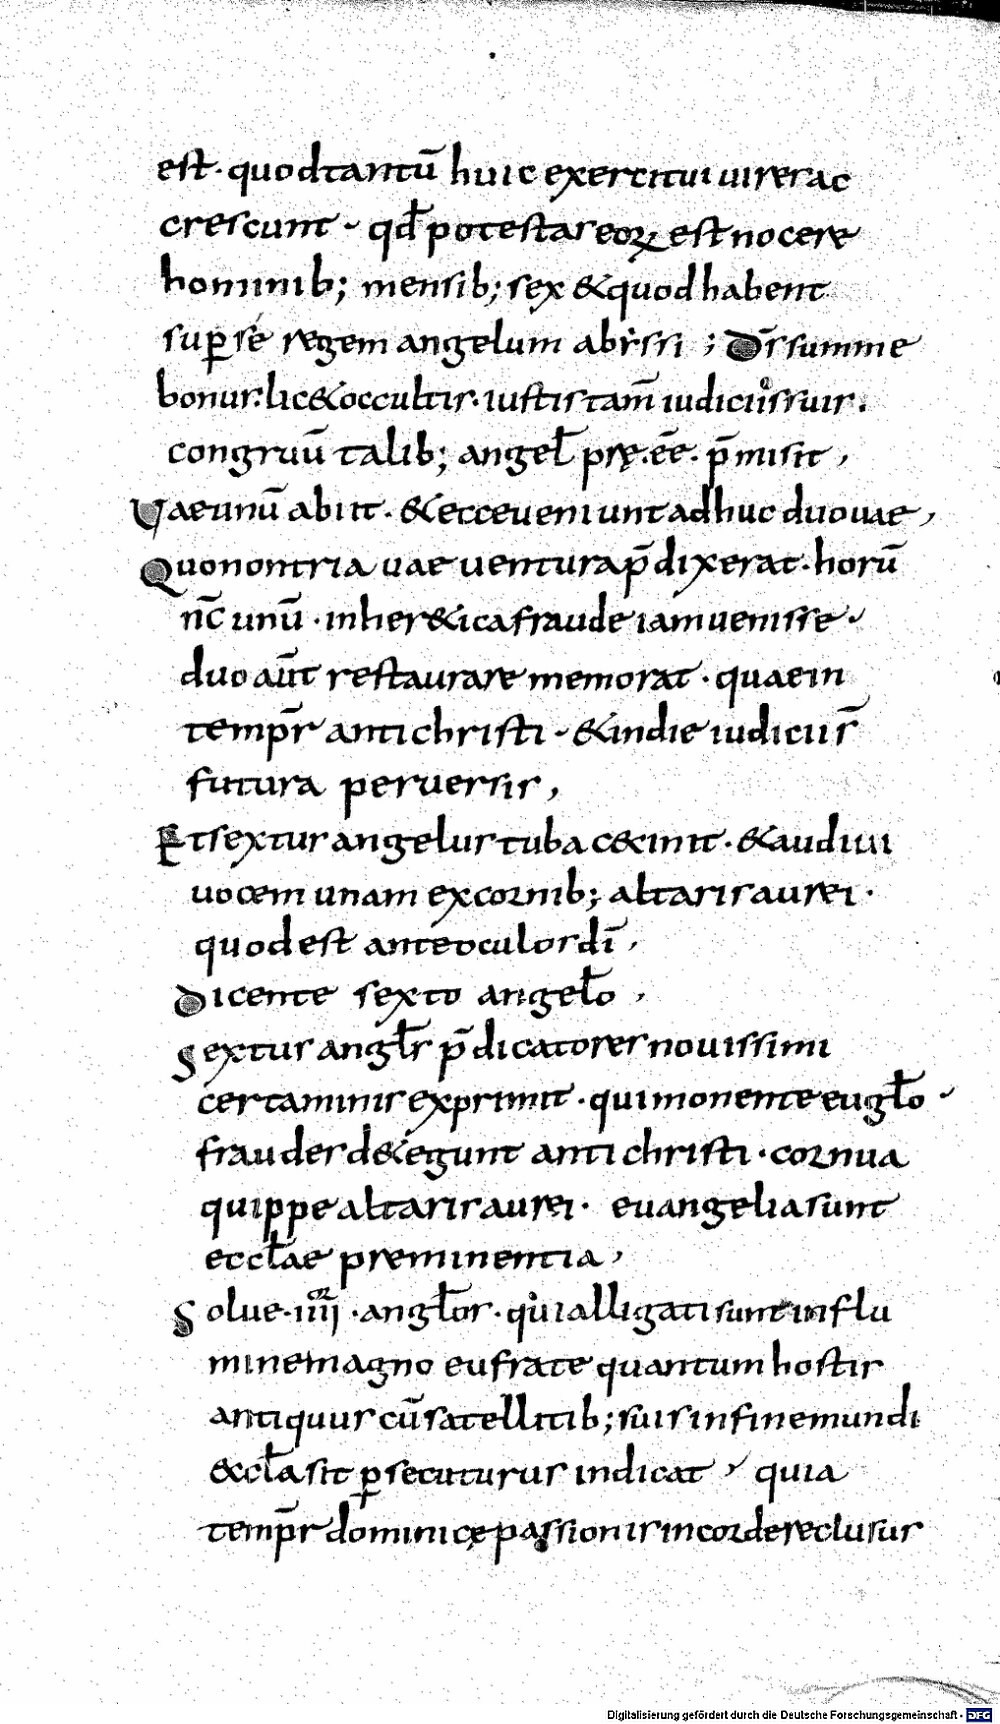 est· quod tantū huic exercitui uires ac
crescunt· qđ potestas eoꝝ est nocere
hominib; mensib; sex & quod habent
suꝑ se regem angelum abyssi; D̄s summe
bonus· lic& occultis· iustis tam̄ iudiciis suis·
congruū talib; angeł pręęē· p̄misit,
Vae unū abiit· & ecce ueniunt adhuc duo uae,
Quonon tria uae uentura p̄dixerat· horū
nc̄ unū· in her&ica fraude iam uenisse·
duo aūt restaurare memorat· quae in
temp̄r antichristi· & in die iudicii s̄
futura peruersis,
Et sextus angelus tuba cecinit· & audiui
uocem unam ex cornib; altaris aurei·
quod est ante oculos dī,
Dicente sexto angeło,
Sextus angłs p̄dicatores nouissimi
certaminis exprimit· qui monente eugło·
fraudes d&egunt antichristi· cornua
quippe altaris aurei· euangelia sunt
eccłae preminentia,
Solue· iiij · angłos· qui alligati sunt in flu
mine magno eufrate quantum hostis
antiquus cū satellitib; suis in fine mundi
&cła sit ꝑsecuturus indicat, quia
temp̄r dominicę passionis in corde reclusus
Digitalisierung gefördert durch die Deutsche Forschungsgemeinschaft - DFG